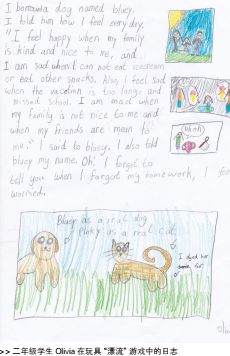 I borrowed a dog named bluey.
I told him how I feel everyday.
"I feel happy when my family
is kind and nice to me, and
I am sad when I can not eat icecream
or eat other snacks. Also, I feel sad
when the vacation is too long and
missed school. I am mad when
my family is not nice to me and
when my friends are mean to
me." I said to bluey. I also told
bluey my name. Oh! I forgot to
tell you when I forgot my homework, I
worried.
Uh oh
Bluey as a real dog
as a real cat
>> 二年级学生 Olivia 在玩具“漂流”游戏中的日志